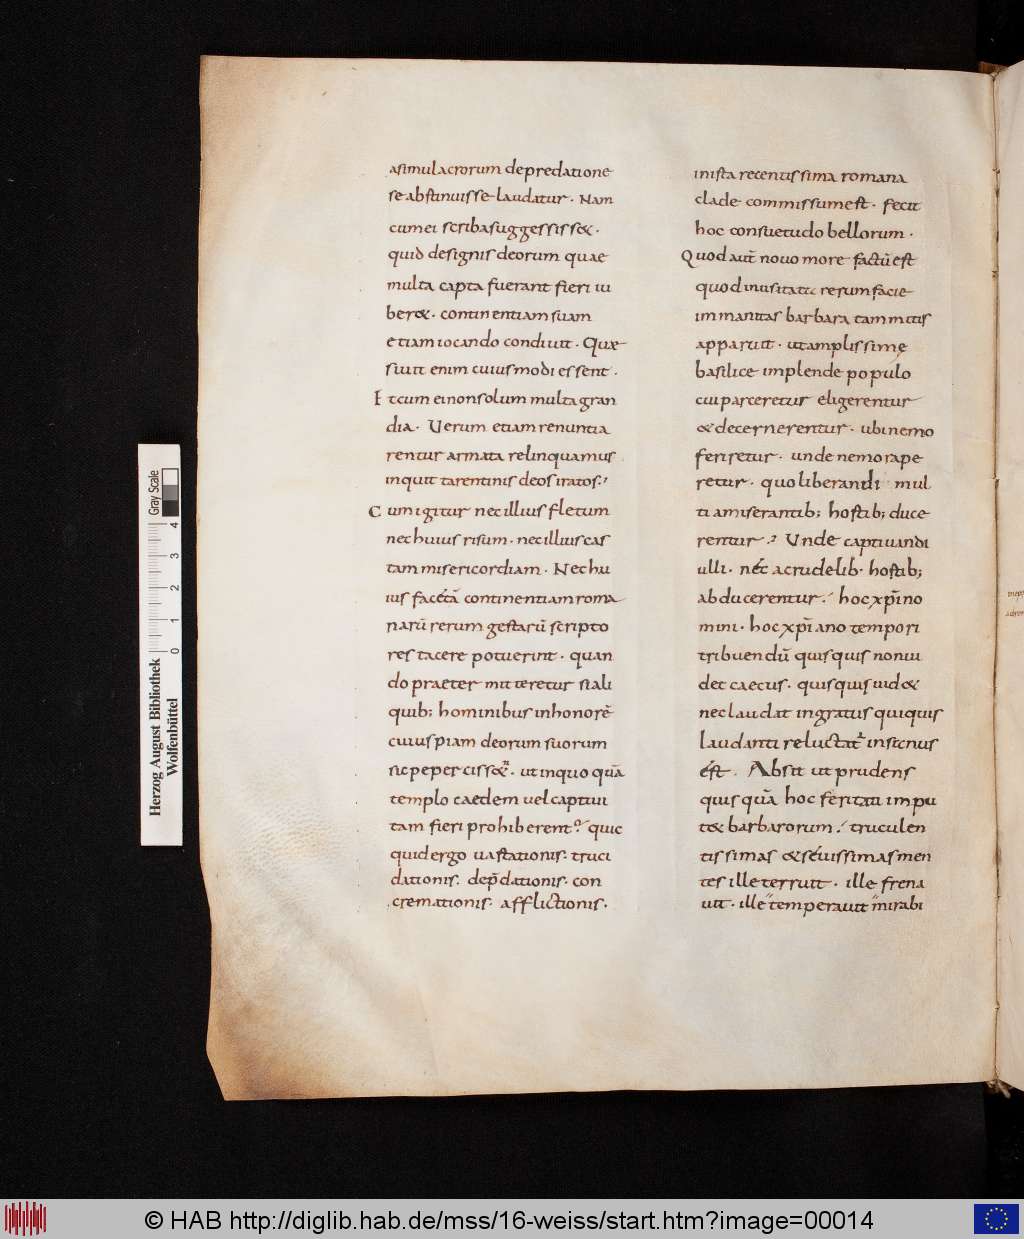 asimulacrorum depredatione
se abstinuisse laudatur · Nam
cumei scriba suggessiss&·
quid designis deorum quae
multa capta fuerant fieri iu
ber&· continentiam suam
etiam iocando condiuit · Quae
siuit enim cuius modi essent ·
Et cum ei non solum multa gran
dia · Uerum etiam renuntia
rentur armata relinquamus
inquit tarentinis deos iratos;
Cum igitur nec illius fletum
nec huius risum · nec illius cas
tam misericordiam · Nec hu
ius facétā continentiam roma
narū rerum gestarū scripto
res tacere potuerint · quan
do praeter mitteretur si ali
quib; hominibus inhonorē
cuius piam deorum suorum
sic pepercissent · ut in quo quā
templo caedem uel captiui
tam fieri prohiberent? quic
quid ergo uastationis · truci
dationis · dep̄dationis · con
cremationis · afflictionis ·
in ista recentissima romana
clade commissum est · fecit
hoc consuetudo bellorum ·
Quod aut̄ nouo more factū est
quod inusitata rerum facie
immanitas barbara tam mitis
apparuit · ut amplissimę
basilice implende populo
cui parceretur eligerentur
& decernerentur · ubi nemo
feriretur · unde nemo rape
retur · quo liberandi mul
ti amiserantib; hostib; duce
rentur · Unde captiuandi
ulli · néc a crudelib · hostib;
abducerentur · hoc xp̄i no
mini · hoc xp̄iano tempori
tribuendū quisquis non ui
det caecus · quisquis uid&
nec laudat ingratus quiquis
laudanti reluctat̄ insanus
ést · Absit ut prudens
quis quā hoc feritati impu
t& barbarorum · truculen
tissimas & séuissimas men
tes ille terruit · ille frena
uit · ille temperauit mirabi
Herzog August Bibliothek
Wolfenbüttel
0 1 2 3 4
Gray Scale
© HAB http://diglib.hab.de/mss/16-weiss/start.htm?image=00014